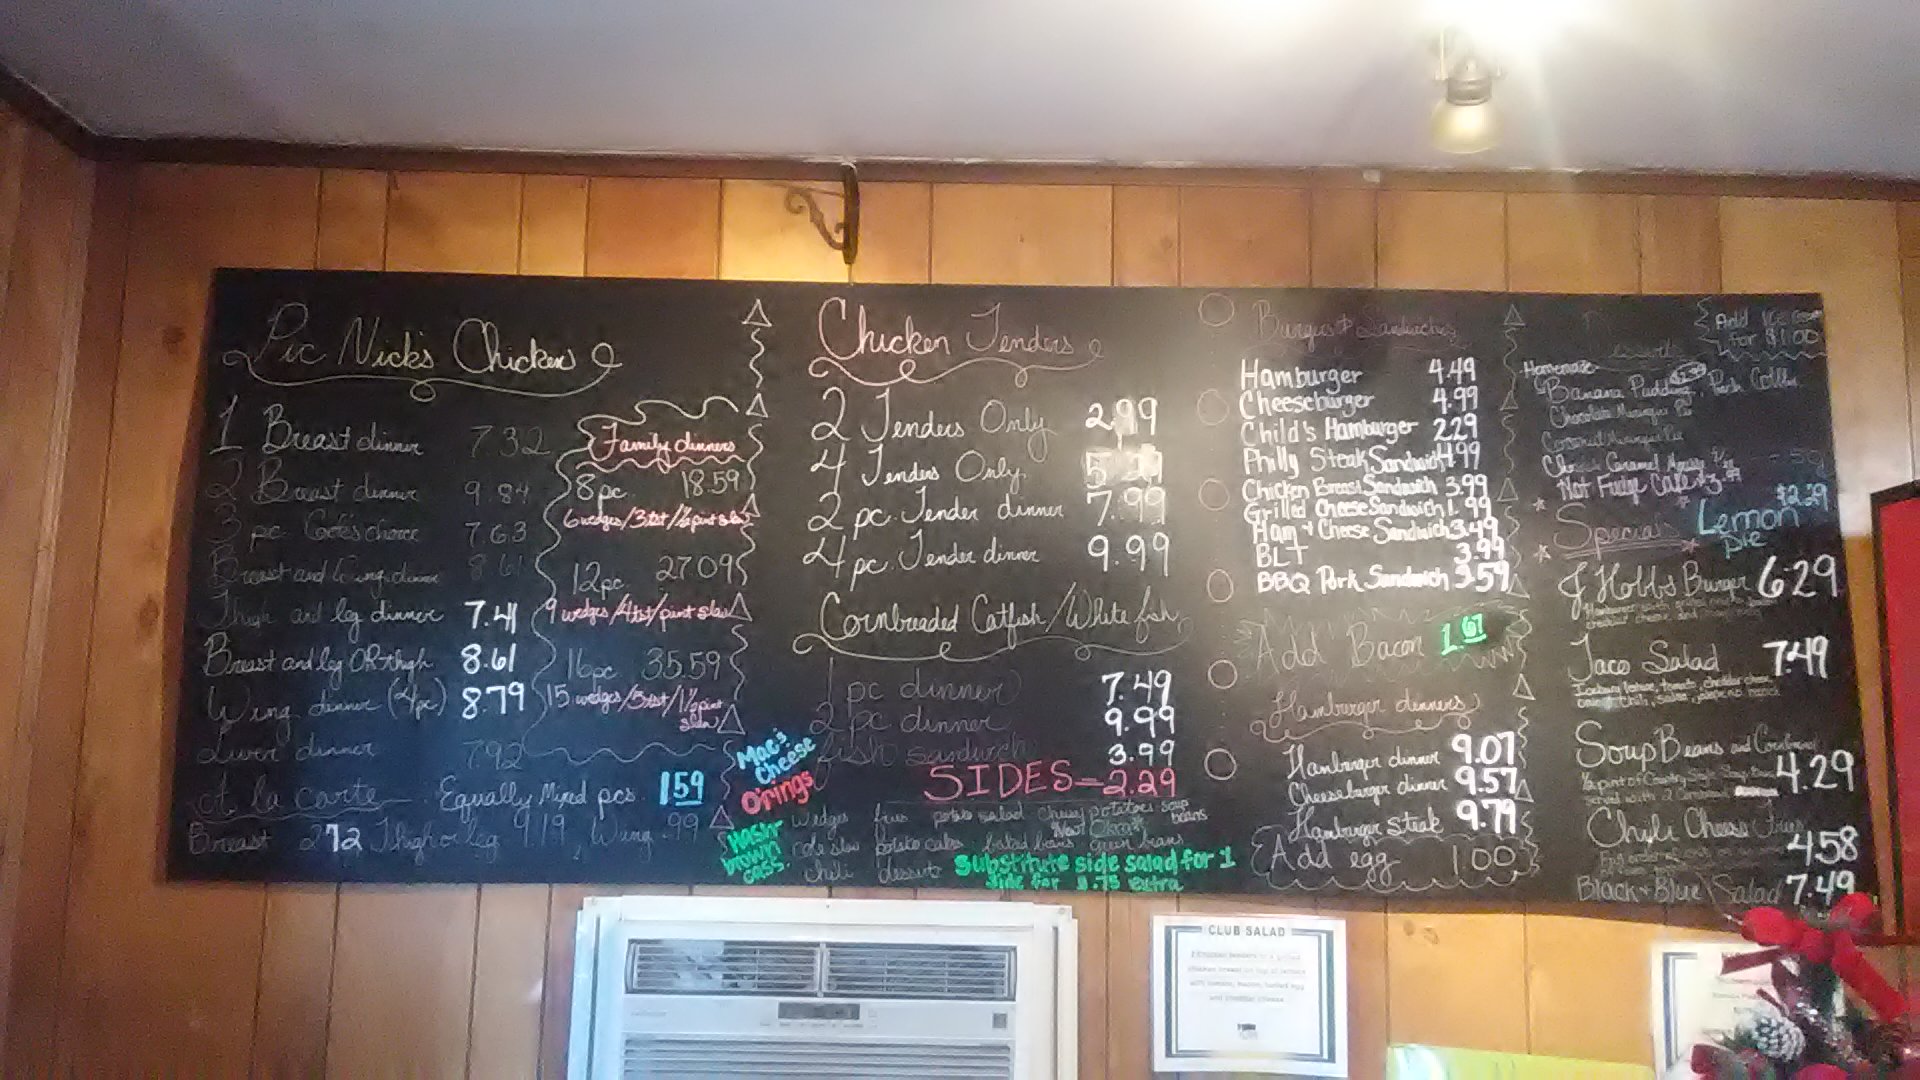 Pic Nick's Chicken
1 Breast dinner 7.32
2 Breast dinner 9.84
3 pc. choice 7.63
Breast and Wing dinner 8.61
Thigh and leg dinner 7.41
Breast and leg OR thigh 8.61
Wing dinner (4pc) 8.79
Liver dinner 7.92
A la carte Equally Mixed pcs. 1.59
Breast 2.72 Thigh or leg 9.19, Wing .99
Family dinners
8 pc. 18.59
6 wedges/3 tst/½ pint slaw
12 pc. 27.09
9 wedges/4 tst/pint slaw
16 pc 35.59
15 wedges/5 tst/1½ pint
slaw
Chicken Tenders
2 Tenders Only 2.99
4 Tenders Only
2 pc. Tender dinner 7.99
4 pc. Tender dinner 9.99
Cornbreaded Catfish/White fish
1 pc dinner 7.49
2 pc dinner 9.99
fish sandwich 3.99
SIDES-2.29
Mac & Cheese
O'rings
Hash brown cass.
Wedges fries potato salad Cheesy potatoes soup beans
New! Okra
cole slaw potato cakes baked beans green beans
chili desserts
Substitute side salad for 1
side for $.75 extra
Burgers & Sandwiches
Hamburger 4.49
Cheeseburger 4.99
Child's Hamburger 2.29
Philly Steak Sandwich 4.99
Chicken Breast Sandwich 3.99
Grilled Cheese Sandwich 1.99
Ham & Cheese Sandwich 3.49
BLT 3.99
BBQ Pork Sandwich 3.59
Add Bacon 1.67
Hamburger dinners
Hamburger dinner 9.07
Cheeseburger dinner 9.57
Hamburger Steak 9.79
Add egg 1.00
Add
for $1.00
Homemade
Banana Pudding
Chocolate Meringue Pie
Coconut Meringue Pie
Hot Fudge Cake
Specials
Lemon Pie $2.29
J Hobbs Burger 6.29
Taco Salad 7.49
Soup Beans and Cornbread 4.29
Chili Cheese Fries 4.58
Black & Blue Salad 7.49
CLUB SALAD